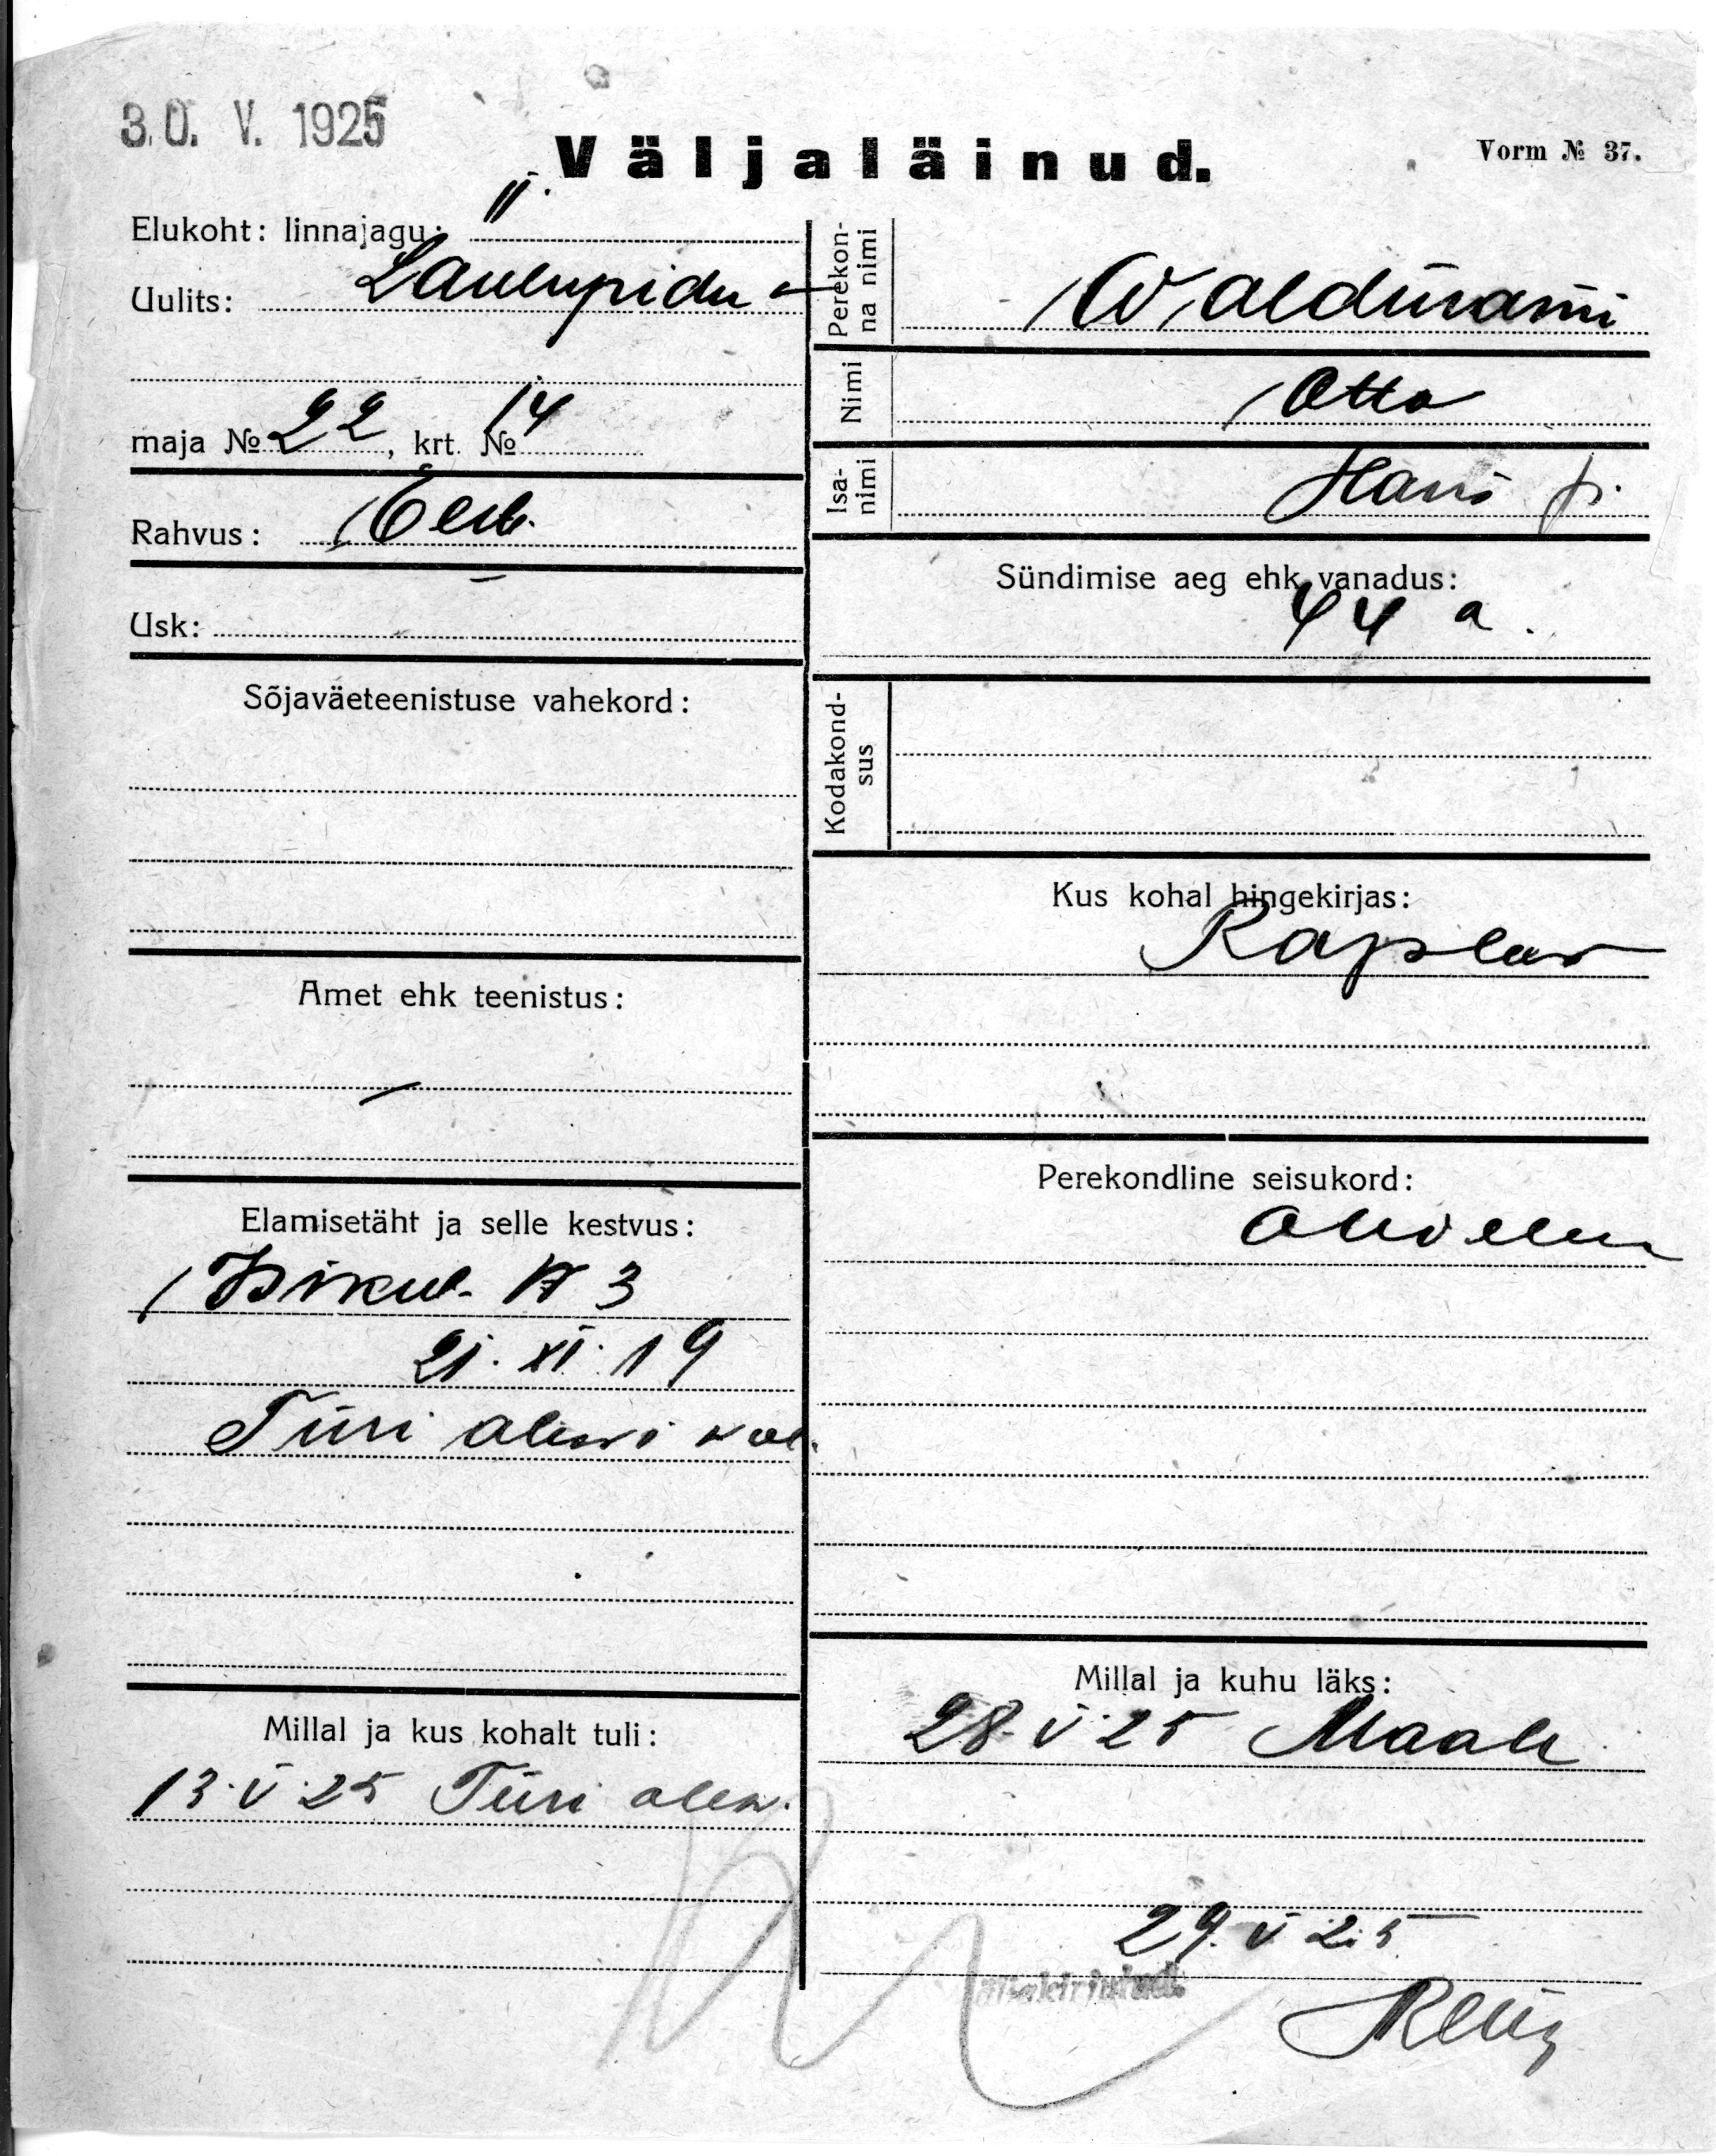 30. V. 1925
Väljaläinud.
Vorm № 37.
Elukoht: linnajagu: II.
Uulits: Laulupidu
maja № 22, krt. № 14
Rahvus: Eest.
Usk: —
Sõjaväeteenistuse vahekord:
Amet ehk teenistus:
—
Elamisetäht ja selle kestvus:
Isikut. № 3
21. XI. 19
Türi alewi wal.
Millal ja kus kohalt tuli:
13. V. 25 Türi alew.
Perekonna nimi
Waldmann
Nimi
Otto
Isanimi
Hans p.
Sündimise aeg ehk vanadus:
44 a.
Kodakondsus
Kus kohal hingekirjas:
Raplas
Perekondline seisukord:
Millal ja kuhu läks:
28. V 25 Maale
29. V 25